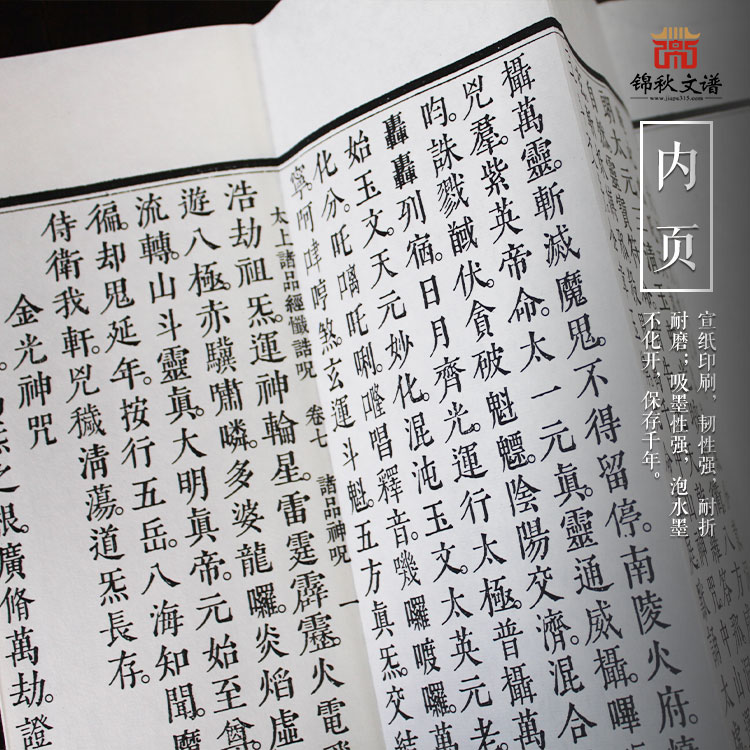 锦秋文谱
www.jiapu315.com
内页
宣纸印刷，韧性强，耐折
耐磨；吸墨性强，泡水墨
不化开，保存千年。
攝萬靈。斬滅魔鬼。不得留停。南陵火府。
兇羣。紫英帝命。太一元真。靈通威攝。嗶
昀。誅戮馘伏。貪破魁魒。陰陽交濟。混合
轟轟列宿。日月齊光。運行太極。普攝萬
始玉文。天元妙化。混沌玉文。太英元老。
化分。吒吒唎。唱釋音。嘰囉喥囉。萬
寧。呵哼煞。玄運斗魁。五方真炁。交結
太上諸品經懺誥呪 卷七 諸品神呪 一
浩劫祖炁。運神輪星。雷霆霹靂。火電
遊八極。赤驥嘯。多婆龍囉。炎焰虛
流轉。山斗靈眞。大明眞帝。元始至尊。
徧。却鬼延年。按行五岳。八海知聞。魔
侍衛我軒。兇穢清蕩。道炁長存。
金光神咒
之根。廣脩萬劫。證